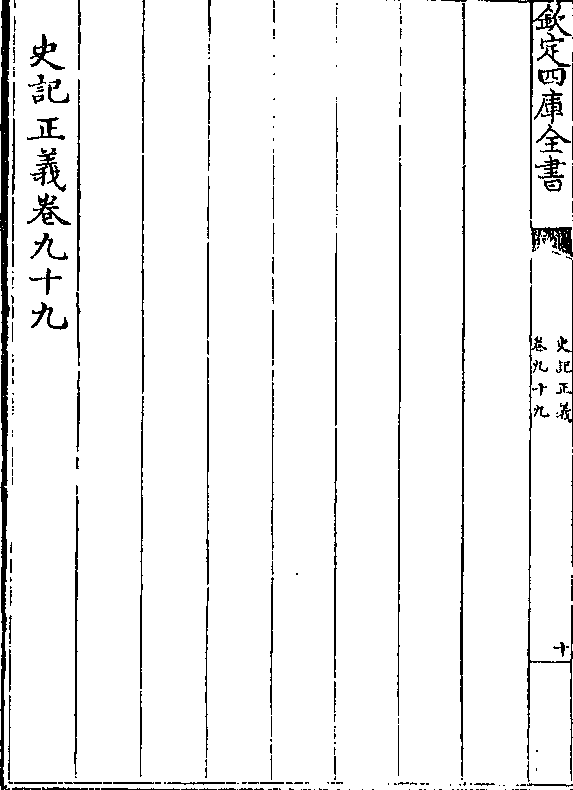 欽定四庫全書
史記正義
卷九十九
十
史記正義卷九十九